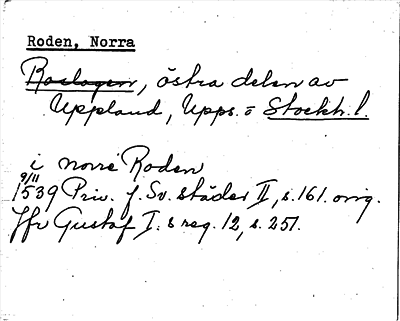 Roden, Norra
Roslagen, östra delen av
Uppland, Upps. o Stockh. l.
i norre Roden
9/11
1539 Priv. f. Sv. städer II, s. 161. orig.
Jfr Gustaf I:s reg. 12, s. 251.